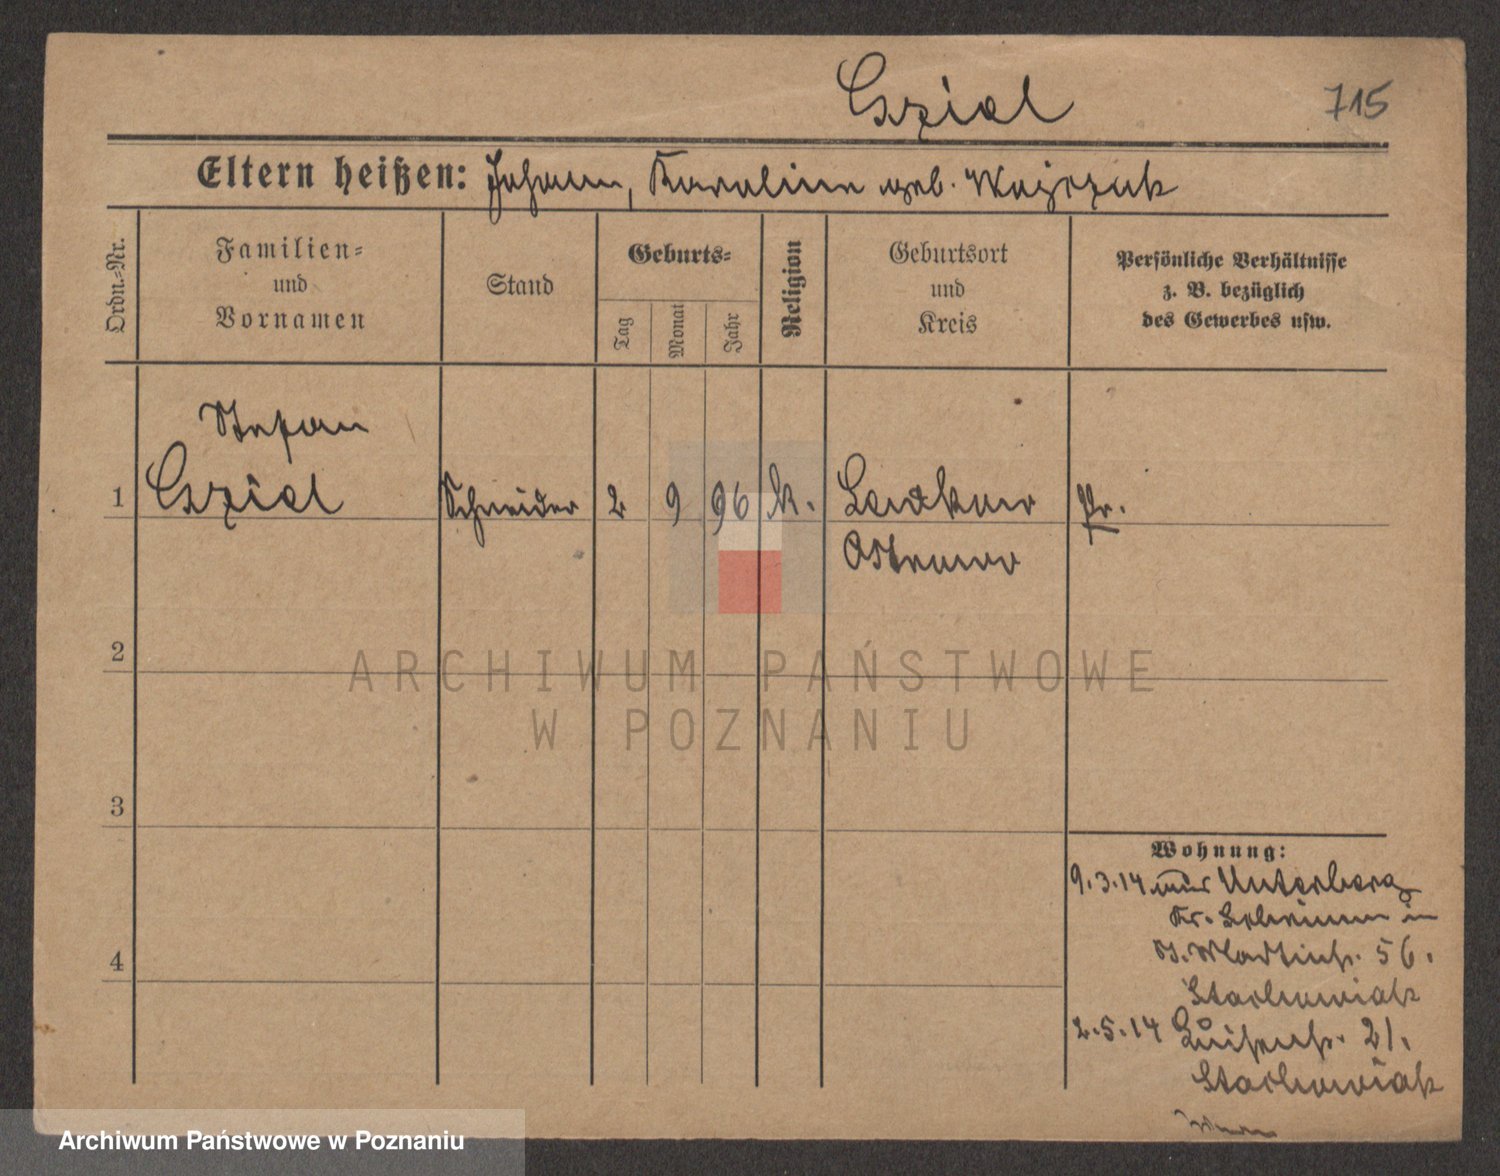 Cziel 715
Eltern heißen: Johann, Karoline geb. Wojczak
Ordn.-Nr.
Familien-
und
Vornamen
Stand
Geburts-
Tag
Monat
Jahr
Religion
Geburtsort
und
Kreis
Persönliche Verhältnisse
z. B. bezüglich
des Gewerbes usw.
Stefan
1 Cziel Schneider 2 9 96 k. Pr.
2
3
4
Wohnung:
9.3.14 aus Unterberg
Kr. Schrimm in
St. Martinstr. 56.
Stachowiak
2.5.14 Luisenstr. 21.
Stachowiak
ARCHIWUM PAŃSTWOWE
W POZNANIU
Archiwum Państwowe w Poznaniu